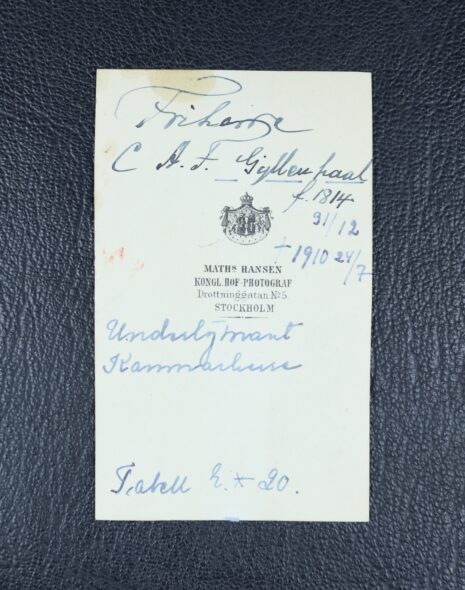 Friherre
C A. F. Gyllenhaal
f. 1814
31/12
+ 1910 24/7
MATHS HANSEN
KONGL. HOF-PHOTOGRAF
Drottninggatan No 5.
STOCKHOLM
Underlöjtnant
Kammarherre
Tabell 2. * 20.